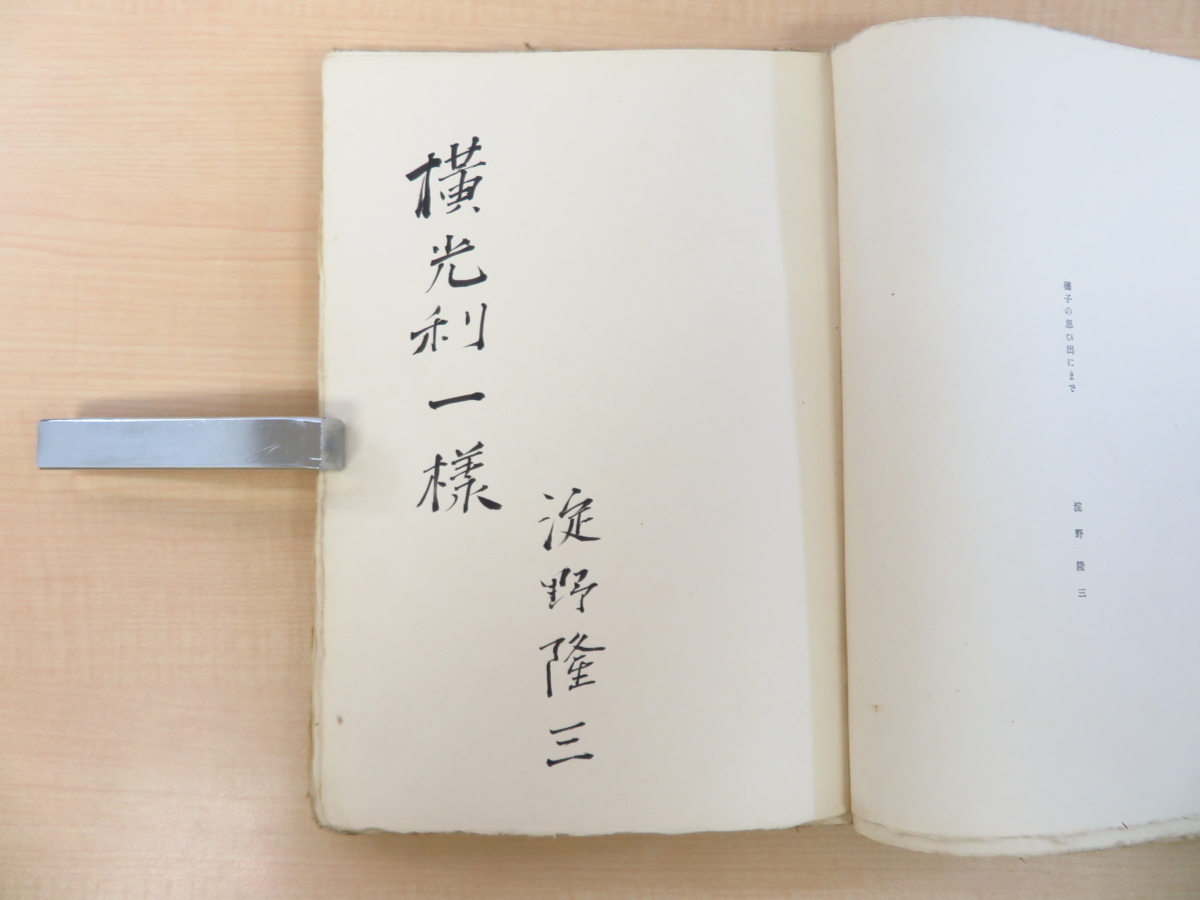 橫光利一樣
淀野隆三
穂子の思ひ出にまで
淀野隆三